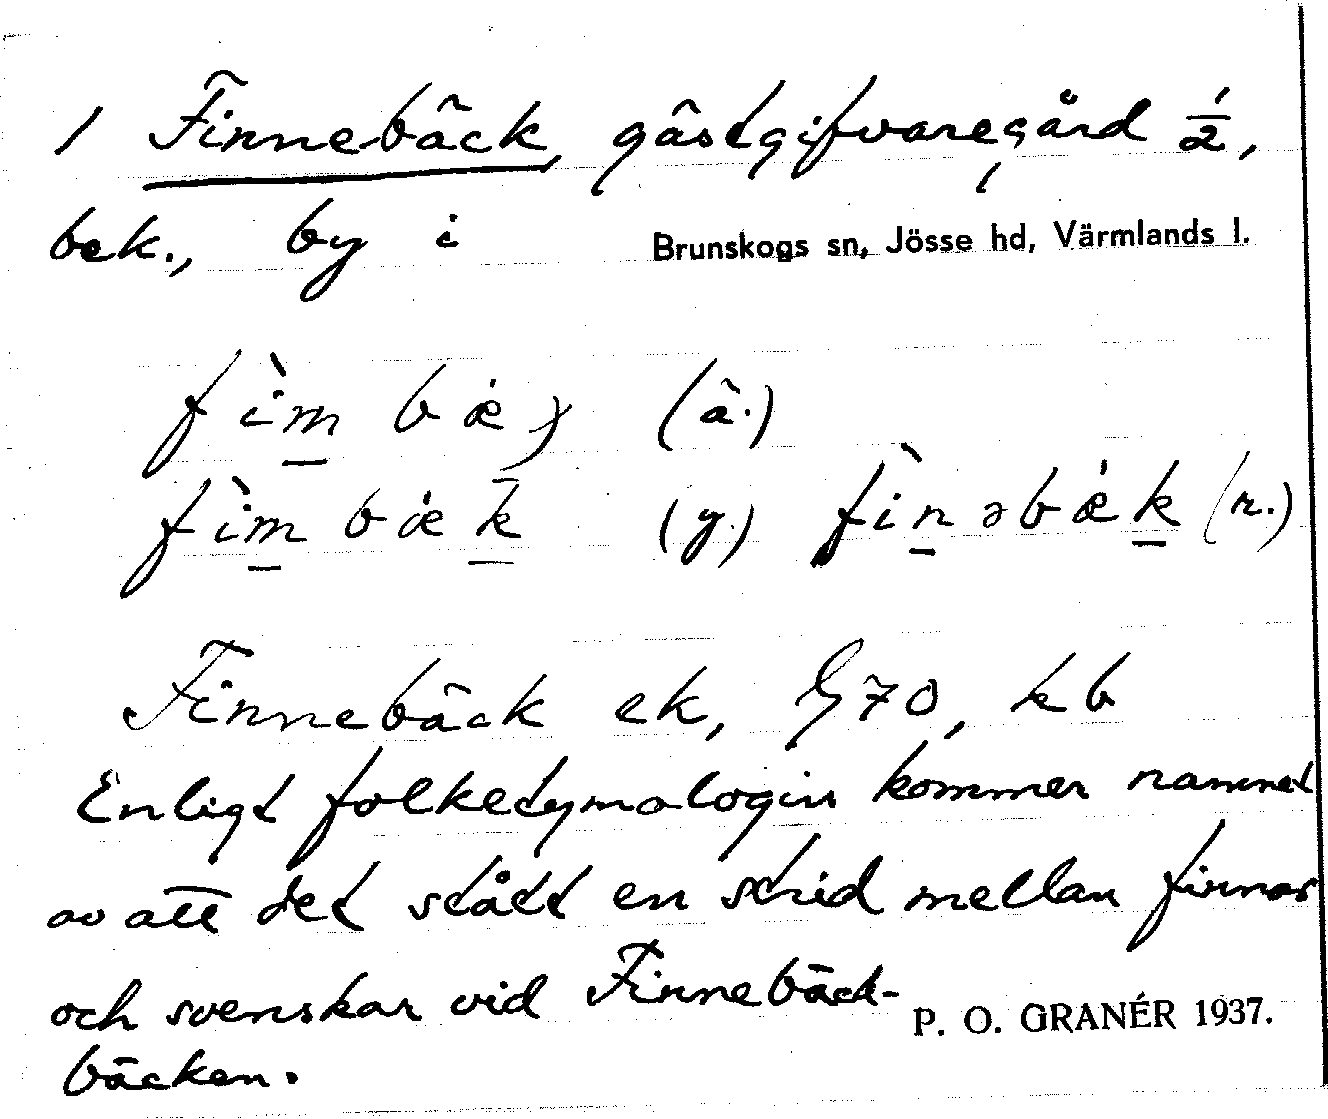 1 Finnebäck, gästgifvaregård 1/2,
bek., by i Brunskogs sn, Jösse hd, Värmlands l.
fìm bæ̇ (ä.)
fìm bæ̇k (y.) fìnəbæ̇k (r.)
Finnebäck ek, G70, kb
Enligt folketymologin kommer namnet
av att det stått en strid mellan finnar
och svenskar vid Finnebäck-
P. O. GRANÉR 1937.
bäcken.